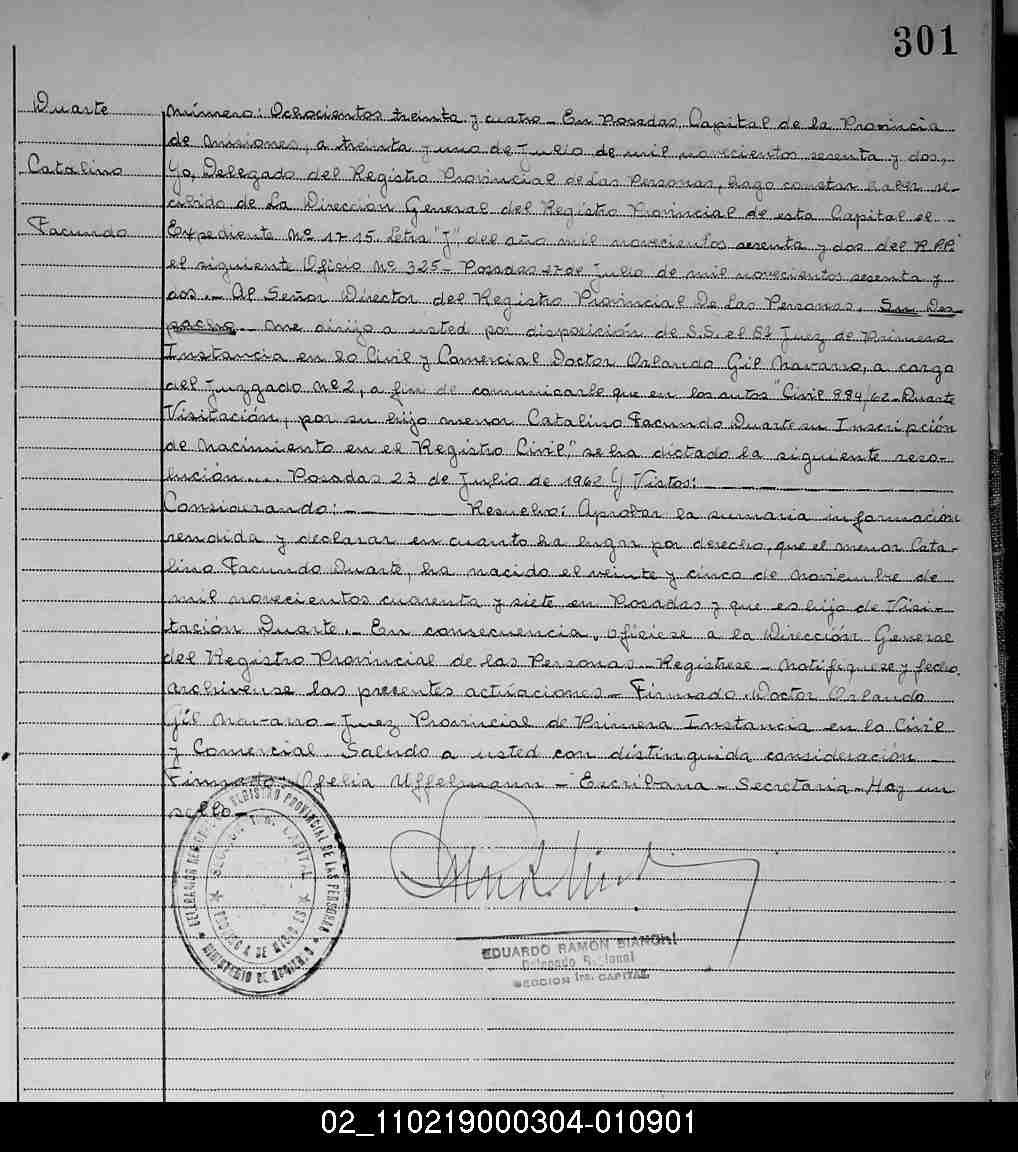 301
Duarte
Catalino
Facundo
Número: Ochocientos treinta y cuatro - En Posadas, Capital de la Provincia
de Misiones, a treinta y uno de Julio de mil novecientos sesenta y dos,
Yo, Delegado del Registro Provincial de las Personas, hago constar haber re-
cibido de La Dirección General del Registro Provincial de esta Capital el
Expediente Nº 1715. Letra "J" del año mil novecientos sesenta y dos del R.P.P.
el siguiente Oficio Nº 325 - Posadas 27 de Julio de mil novecientos sesenta y
dos. - Al Señor Director del Registro Provincial De Las Personas. Su Des
pacho - Me dirijo a usted por disposición de S.S. el Juez de Primera
Instancia en lo Civil y Comercial Doctor Orlando Gil Navarro, a cargo
del Juzgado Nº 2, a fin de comunicarle que en los autos "Civil 884/62 - Duarte
Visitación, por su hijo menor Catalino Facundo Duarte su Inscripción
de Nacimiento en el Registro Civil", se ha dictado la siguiente reso-
lución... Posadas 23 de Julio de 1962 Y Vistos:
Considerando: - Resuelvo: Aprobar la sumaria información
rendida y declarar en cuanto ha lugar por derecho, que el menor Cata-
lino Facundo Duarte, ha nacido el veinte y cinco de Noviembre de
mil novecientos cuarenta y siete en Posadas y que es hijo de Visi-
tación Duarte. - En consecuencia, ofíciese a la Dirección General
del Registro Provincial de las Personas - Regístrese - Notifíquese y fecho.
archívense las presentes actuaciones - Firmado. Doctor Orlando
Gil Navarro - Juez Provincial de Primera Instancia en lo Civil
y Comercial. Saludo a usted con distinguida consideración -
Firmado: Ofelia Uffelmann - Escribana - Secretaria - Hay un
sello -
REGISTRO PROVINCIAL DE LAS PERSONAS
SECCION 1ª CAPITAL
EDUARDO RAMON BIANCHI
Delegado Regional
SECCION 1ra. CAPITAL
02_110219000304-010901